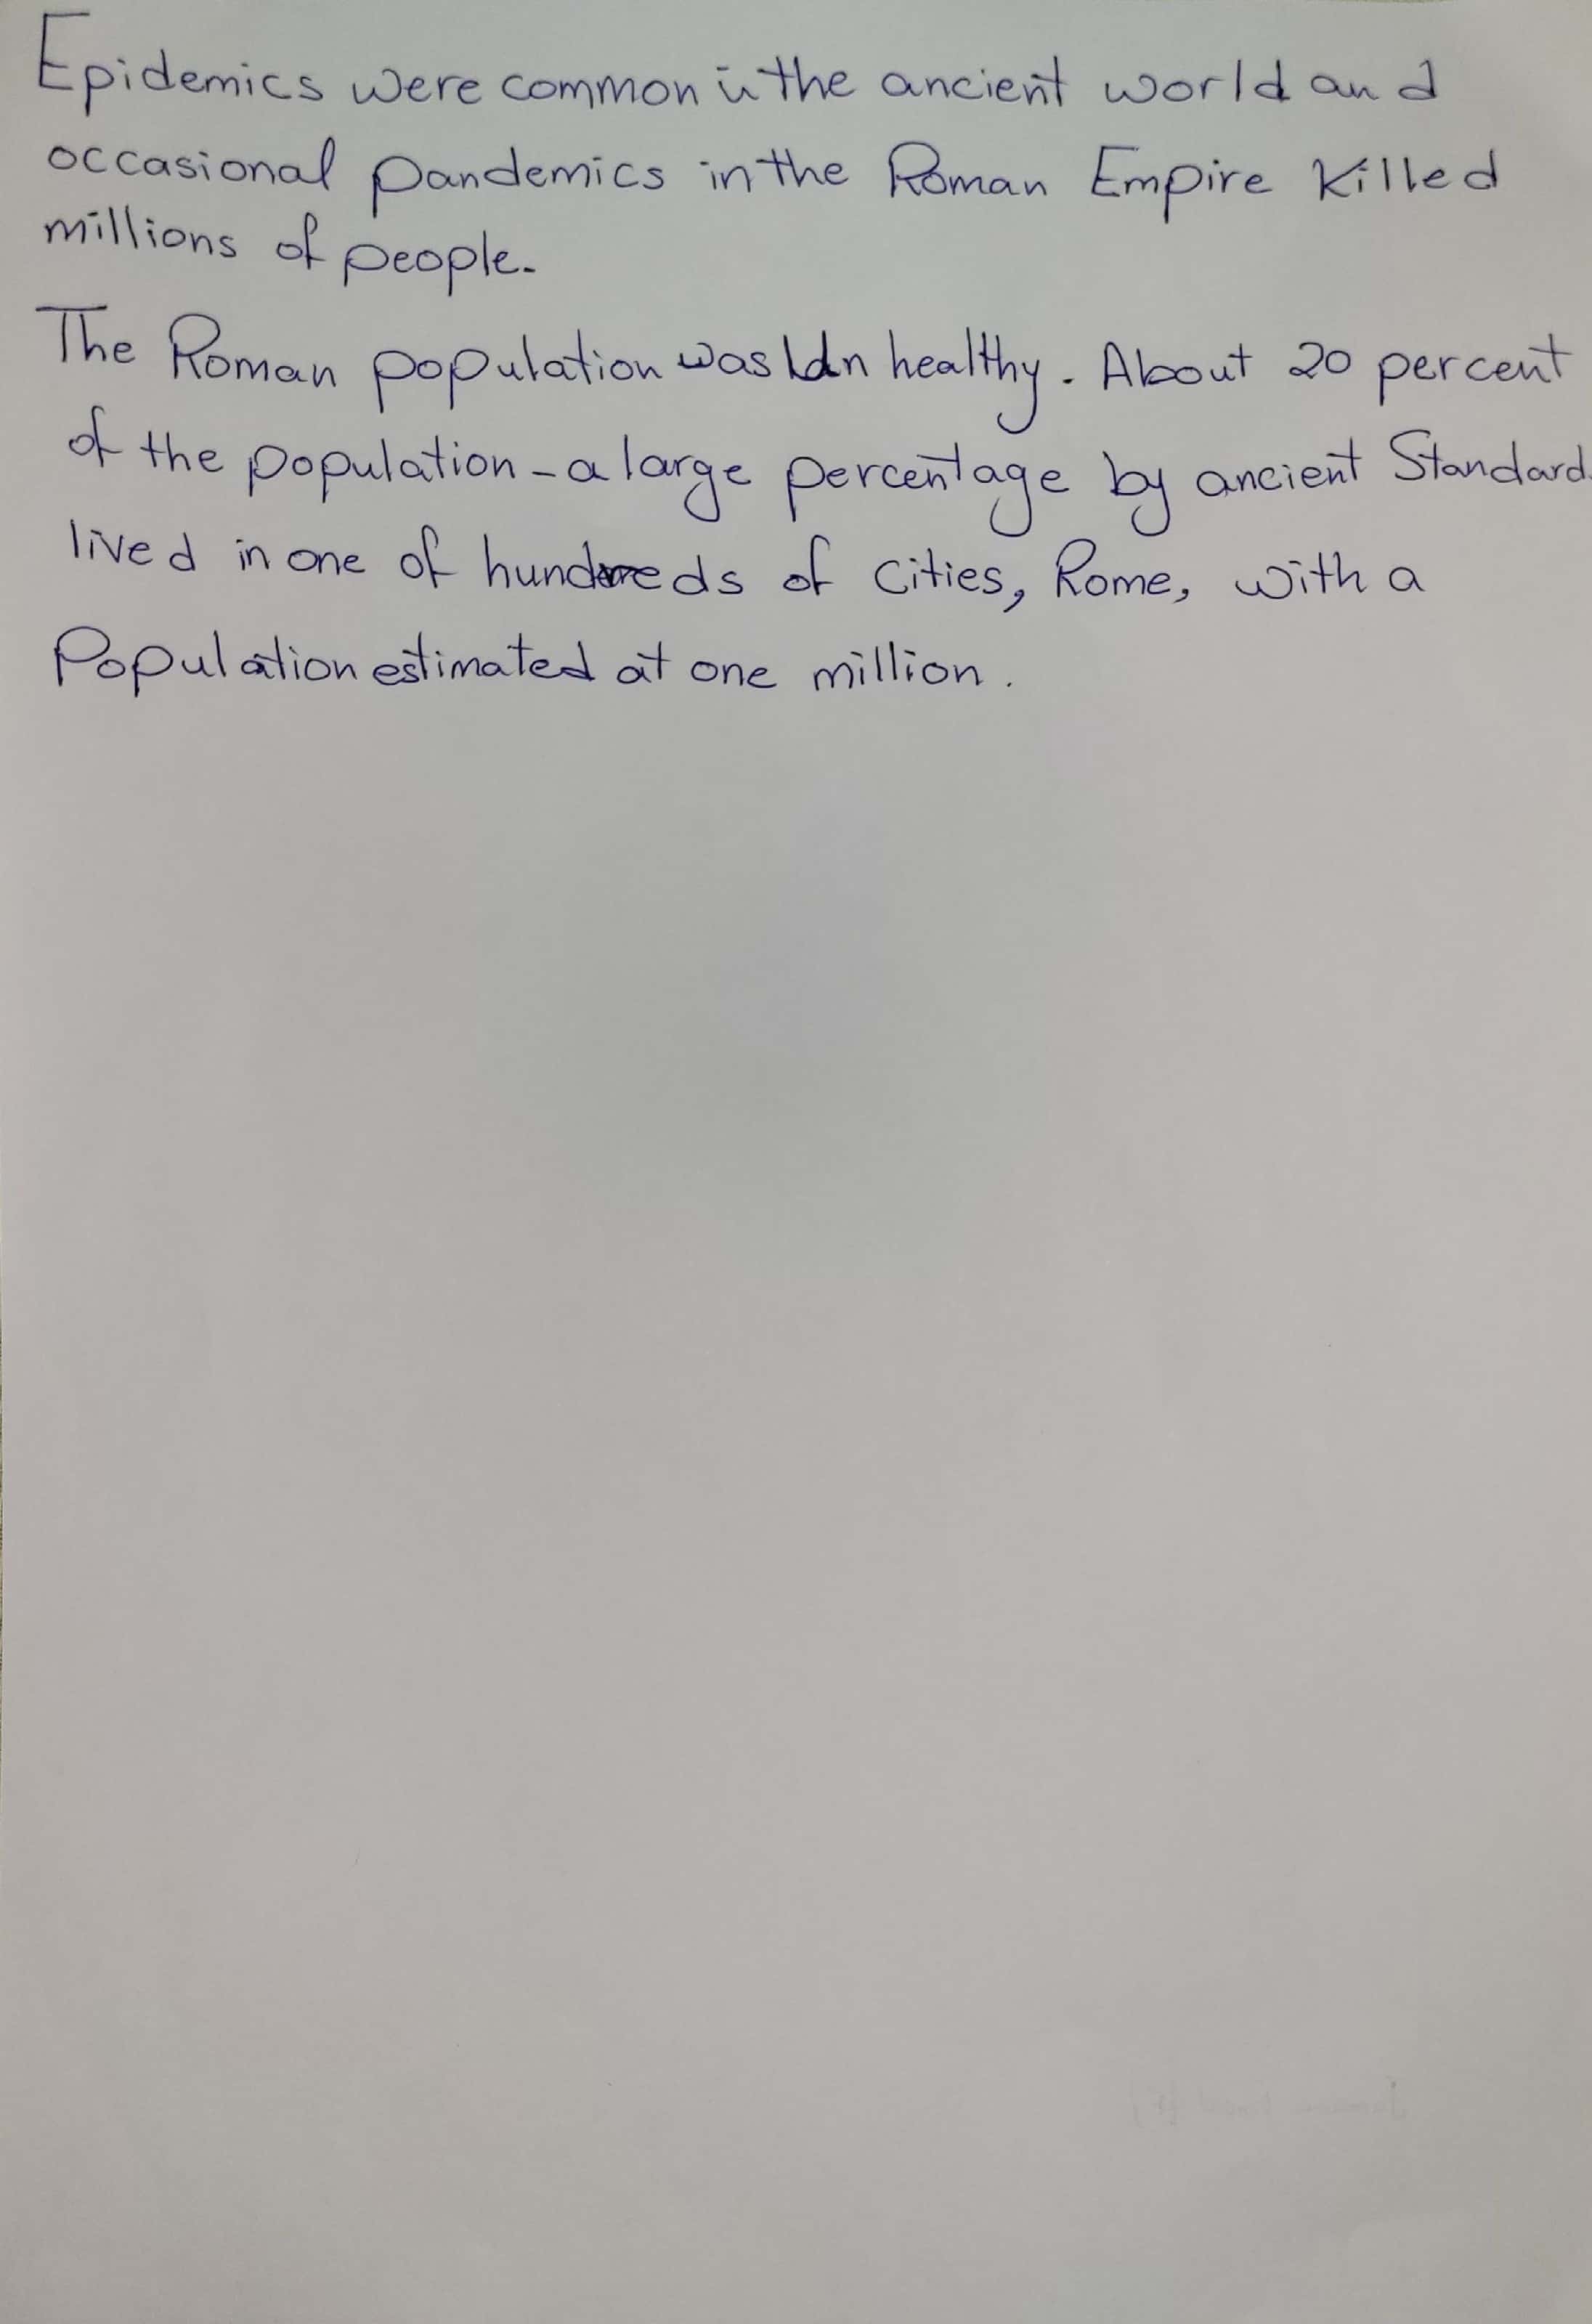 Epidemics were common in the ancient world and
occasional pandemics in the Roman Empire Killed
millions of people.
The Roman population was healthy. About 20 percent
of the population - a large percentage by ancient Standard
lived in one of hundreds of cities, Rome, with a
Population estimated at one million.